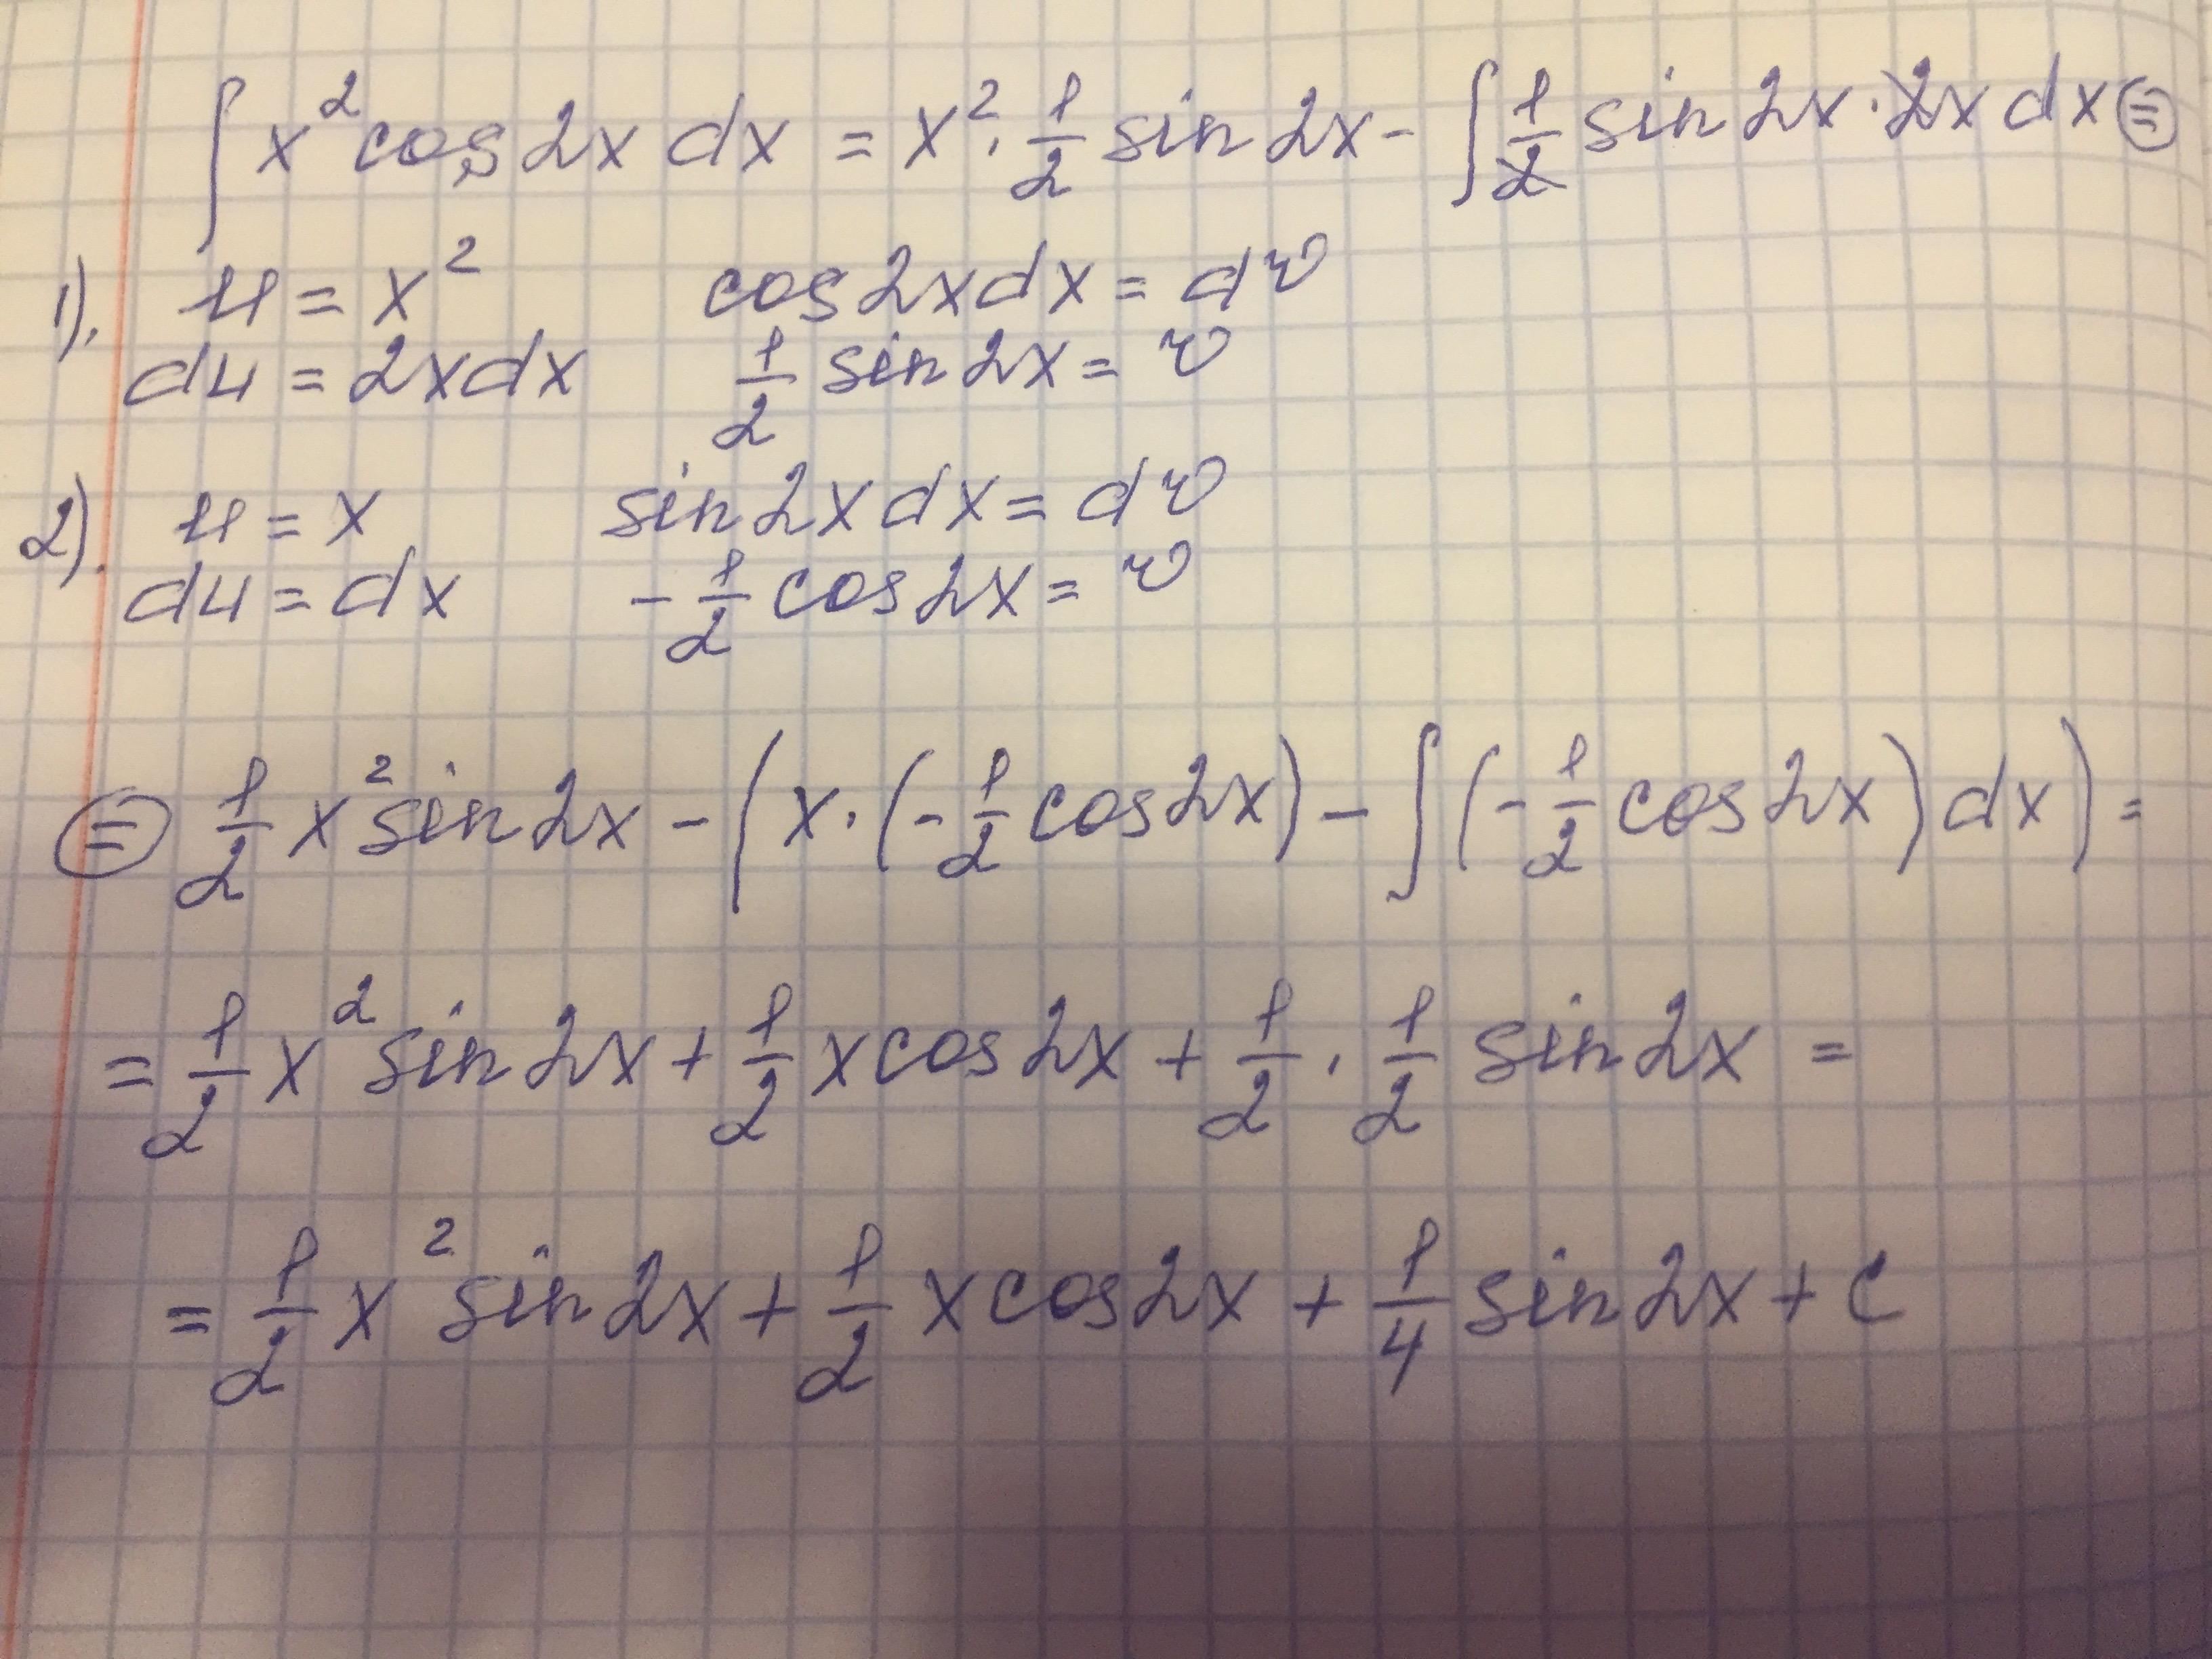 ∫ x² cos 2x dx = x² · 1/2 sin 2x - ∫ 1/2 sin 2x · 2x dx ⊜
1). u = x² cos 2x dx = dv
du = 2x dx 1/2 sin 2x = v
2). u = x sin 2x dx = dv
du = dx - 1/2 cos 2x = v
⊜ 1/2 x² sin 2x - (x · (- 1/2 cos 2x) - ∫ (- 1/2 cos 2x) dx) =
= 1/2 x² sin 2x + 1/2 x cos 2x + 1/2 · 1/2 sin 2x =
= 1/2 x² sin 2x + 1/2 x cos 2x + 1/4 sin 2x + C